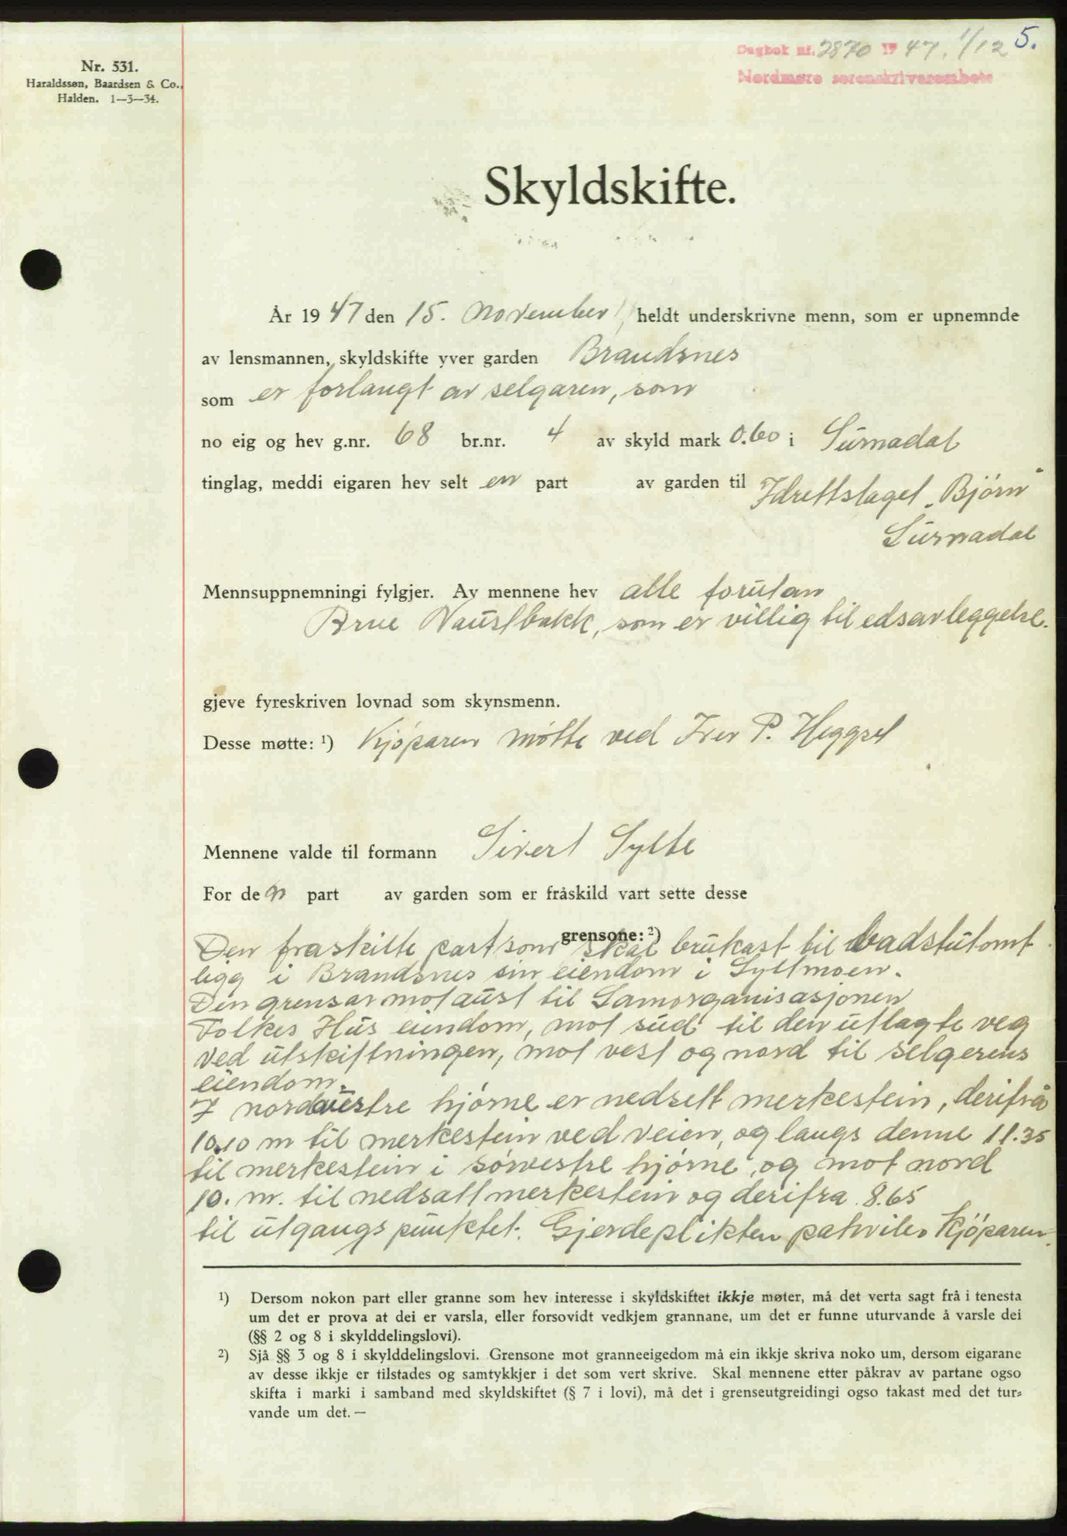 Nr. 531.
Haraldssøn, Baardsen & Co.,
Halden. 1—3—34.
Dagbok nr. 2870 1947. 1/12 5.
Nordmøre sorenskriverembete
Skyldskifte.
År 1947 den 15. November heldt underskrivne menn, som er upnemnde
av lensmannen, skyldskifte yver garden Brandsnes
som er forlangt av selgaren, som
no eig og hev g.nr. 68 br.nr. 4 av skyld mark 0.60 i Surnadal
tinglag, meddi eigaren hev selt en part av garden til Idrettslaget „Bjørn"
Surnadal
Mennsuppnemningi fylgjer. Av mennene hev alle forutan
Brue Naustbakk, som er villig til edsavleggelse.
gjeve fyreskriven lovnad som skynsmenn.
Desse møtte: ¹) Kjøparen møtte ved Iver P. Heggset
Mennene valde til formann Sivert Sylte
For den part av garden som er fråskild vart sette desse
grensone: ²)
Den fraskilte part som skal brukast til badstutomt
ligg i Brandsnes sin eiendom i Syltmoen.
Den grensar mot aust til Samorganisasjonen
Folkes Hus eiendom, mot sud til den utlagte veg
ved utskiftningen, mot vest og nord til selgerens
eiendom.
I nordvestre hjørne er nedsett merkestein, derifrå
10,10 m til merkestein ved veien, og langs denne 11.35
til merkestein i sørvestre hjørne, og mot nord
10. m. til nedsatt merkestein og derifra 8.65
til utgangspunktet. Gjerdeplikten pahviler Kjöparen.
¹) Dersom nokon part eller granne som hev interesse i skyldskiftet ikkje møter, må det verta sagt frå i tenesta
um det er prova at dei er varsla, eller forsovidt vedkjem grannane, um det er funne uturvande å varsle dei
(§§ 2 og 8 i skylddelingslovi).
²) Sjå §§ 3 og 8 i skylddelingslovi. Grensone mot granneeigedom må ein ikkje skriva noko um, dersom eigarane
av desse ikkje er tilstades og samtykkjer i det som vert skrive. Skal mennene etter påkrav av partane ogso
skifta i marki i samband med skyldskiftet (§ 7 i lovi), må det i grenseutgreidingi ogso takast med det tur-
vande um det. —